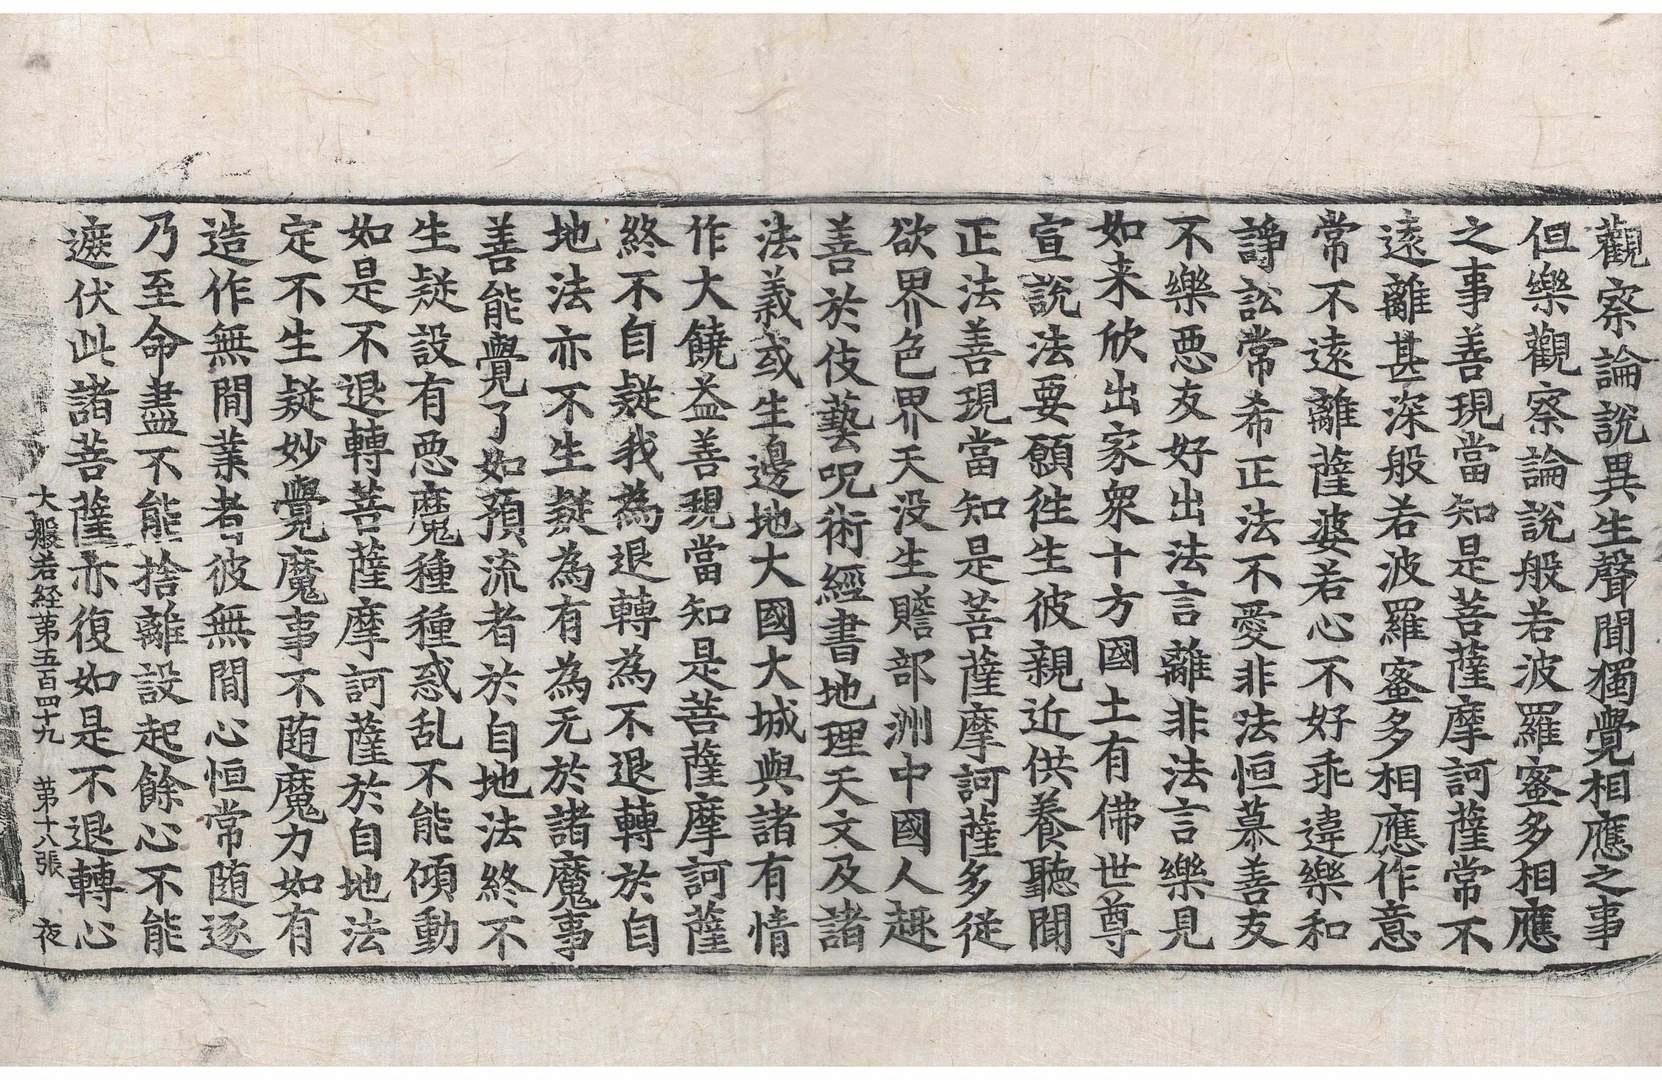 觀察論說異生聲聞獨覺相應之事
但樂觀察論說般若波羅蜜多相應
之事善現當知是菩薩摩訶薩常不
遠離甚深般若波羅蜜多相應作意
常不遠離薩婆若心不好乖違樂和
諍訟常希正法不愛非法恒慕善友
不樂惡友好出法言離非法言樂見
如来欣出家衆十方國土有佛世尊
宣說法要願徃生彼親近供養聽聞
正法善現當知是菩薩摩訶薩多從
欲界色界天没生贍部洲中國人趣
善於伎藝呪術經書地理天文及諸
法義或生邊地大國大城與諸有情
作大饒益善現當知是菩薩摩訶薩
終不自疑我為退轉為不退轉於自
地法亦不生疑為有為无於諸魔事
善能覺了如預流者於自地法終不
生疑設有惡魔種種惑乱不能傾動
如是不退轉菩薩摩訶薩於自地法
定不生疑妙覺魔事不随魔力如有
造作無間業者彼無間心恒常随逐
乃至命盡不能捨離設起餘心不能
遮伏此諸菩薩亦復如是不退轉心
大般若経第五百四十九　第十八張　夜